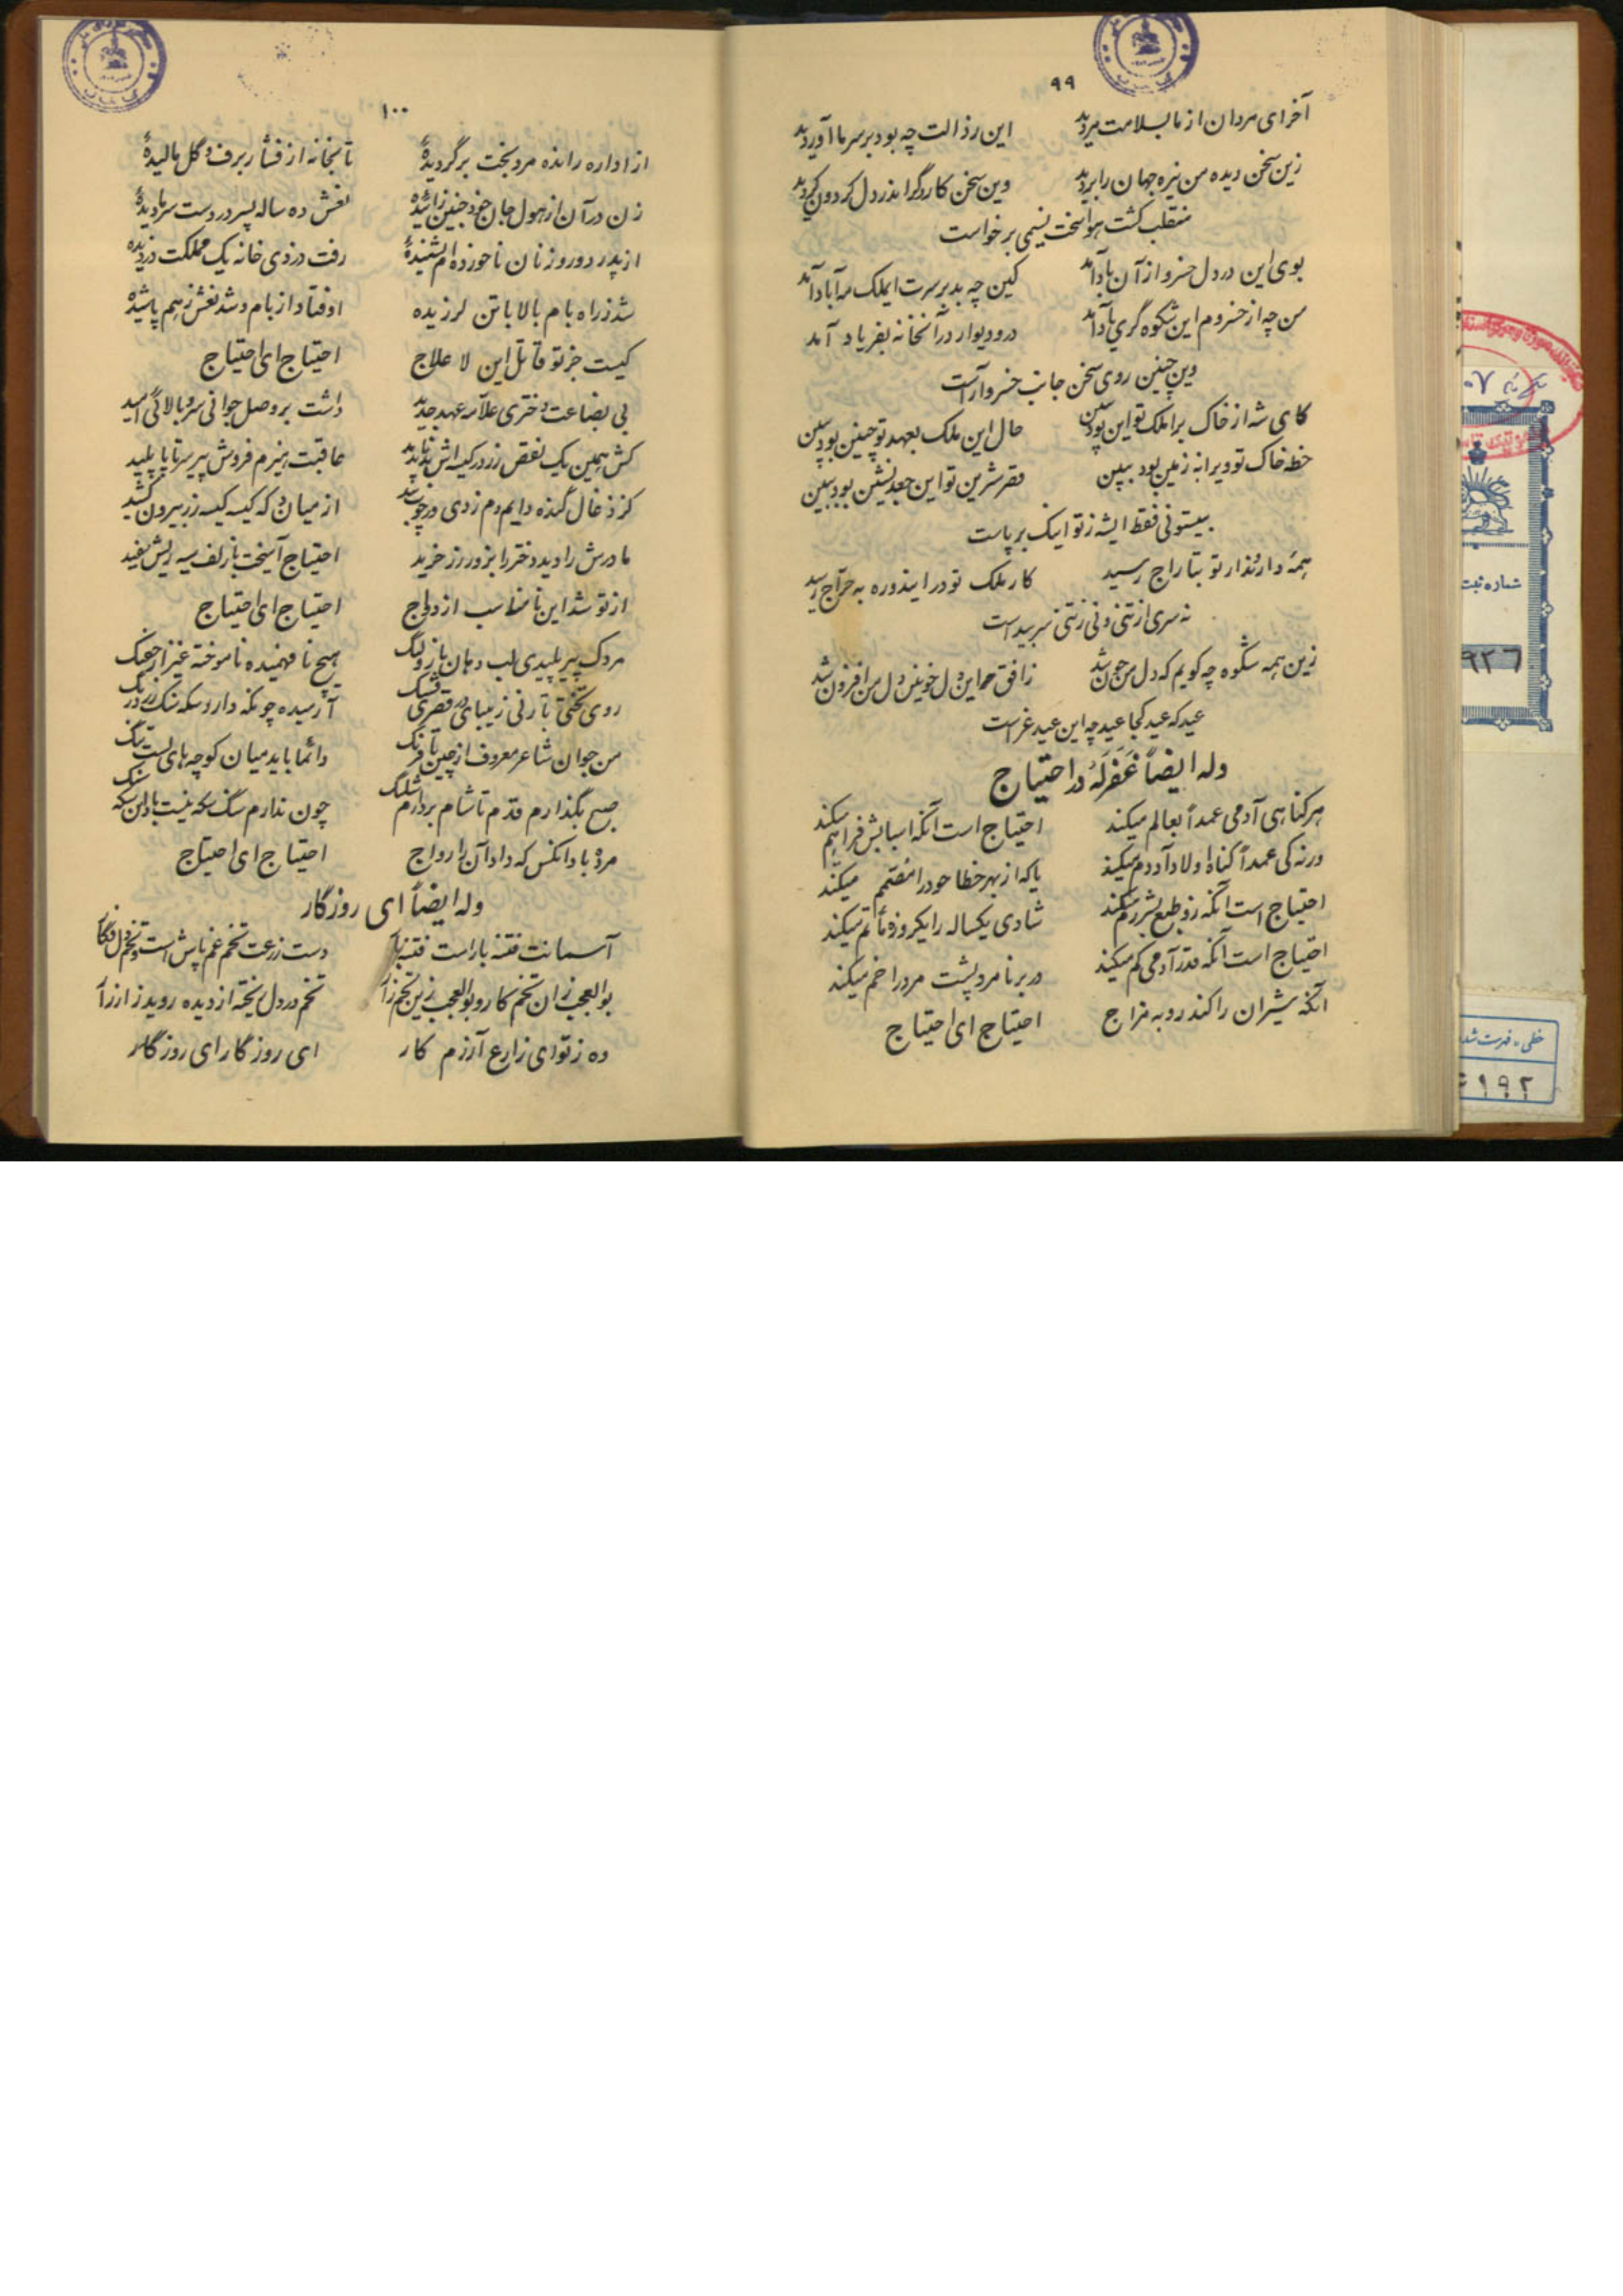 ۹۹
آخر ای مردان از ما بسلامت میرید این رذالت چه بود بر سر ما آوردید
زین سخن دیده من تیره جهان را بردید وین سخن کارگر اندر دل گردون کردید
منقلب گشت هوا سخت نسیمی برخواست
بوی این درد دل خسرو از آن باد آمد کین چه بد بر سرت ایملک مه آباد آمد
من چه از خسروم این شکوه گری یاد آمد در و دیوار در آنخانه بفریاد آمد
وین چنین روی سخن جانب خسرو آراست
کای شه از خاک برا ملک تو این بود ببین حال این ملک بعهد تو چنین بود ببین
خطه خاک تو ویرانه زمین بود ببین قصر شیرین تو این جغد نشین بود ببین
بیستونی فقط ایشه ز تو اینک برپاست
همه دار و ندار تو بتاراج رسید کار ملک تو در ایندوره به حراج رسید
نه سری از تنی و نی ز تنی سر پیداست
زین همه شکوه چه گویم که دل من خون شد ز افق این دل خونین دل من افزون شد
عید که عید کجا عید چه این عید عزاست
وله ایضاً غفرله در احتیاج
هر گناهی آدمی عمداً بعالم میکند احتیاج است آنکه اسبابش فراهم میکند
ورنه کی عمداً گناه اولاد آدم میکند یا که از بهر خطا خود را مصمم میکند
احتیاج است آنکه زو طبع بشر رم میکند شادی یکساله را یکروزه ماتم میکند
احتیاج است آنکه قدر آدمی کم میکند در بر نامرد پشت مرد را خم میکند
آنکه شیران را کند روبه مزاج احتیاج ای احتیاج
۱۰۰
از اداره رانده مرد بخت برگردیدهٔ تا بخانه از فشار برف و گل مالیدهٔ
زن در آن از هول جان خود جنین زائیدهٔ نعش ده ساله پسر در دست سرما دیدهٔ
از پدر دو روز نان ناخورده ام شنیدهٔ رفت دزدی خانه یک مملکت دزدیده
شد ز راه بام بالا با تن لرزیده اوفتاد از بام و شد نعشش ز هم پاشیده
کیست جز تو قاتل این لا علاج احتیاج ای احتیاج
بی بضاعت دختری علامه عهد جدید داشت بر وصل جوانی سرو بالائی امید
کش همین یک نقص زر در کیسه اش بد ناپدید عاقبت هیزم فروش پیر سر تا پا پلید
کز ذغال گنده دایم دم زدی وز چوب بید از میان دکه کیسه کیسه زر بیرون کشید
مادرش را دید و دختر را بزور زر خرید احتیاج آمیخت با زلف سیه ریش سفید
از تو شد این نامناسب ازدواج احتیاج ای احتیاج
مردک پیر پلیدی لب دهان یا زولنگ هیچ نا فهمیده نا موخته غیر از جفنگ
روی تختی با زنی زیبای در قصری قشنگ آرمیده چونکه دارد سکه سنگ زردرنگ
من جوان شاعر معروف از چین تا فرنگ دائما باید میان کوچه های پست و تنگ
صبح بگذارم قدم تا شام بردارم شلنگ چون ندارم سنگ سکه نیست باد این سکه سنگ
مرده باد آنکس که داد آن را رواج احتیاج ای احتیاج
وله ایضاً ای روزگار
آسمانت فتنه بار است فتنه بار دست زرعت تخم غم پاش است و تخم دل فگار
بوالعجب زان تخم کار و بوالعجب زین تخم زار تخم در دل ریخته از دیده روید زار زار
ده ز تو ای زارع آزرم کار ای روزگار ای روزگار
شماره ثبت
خطی - فهرست شده